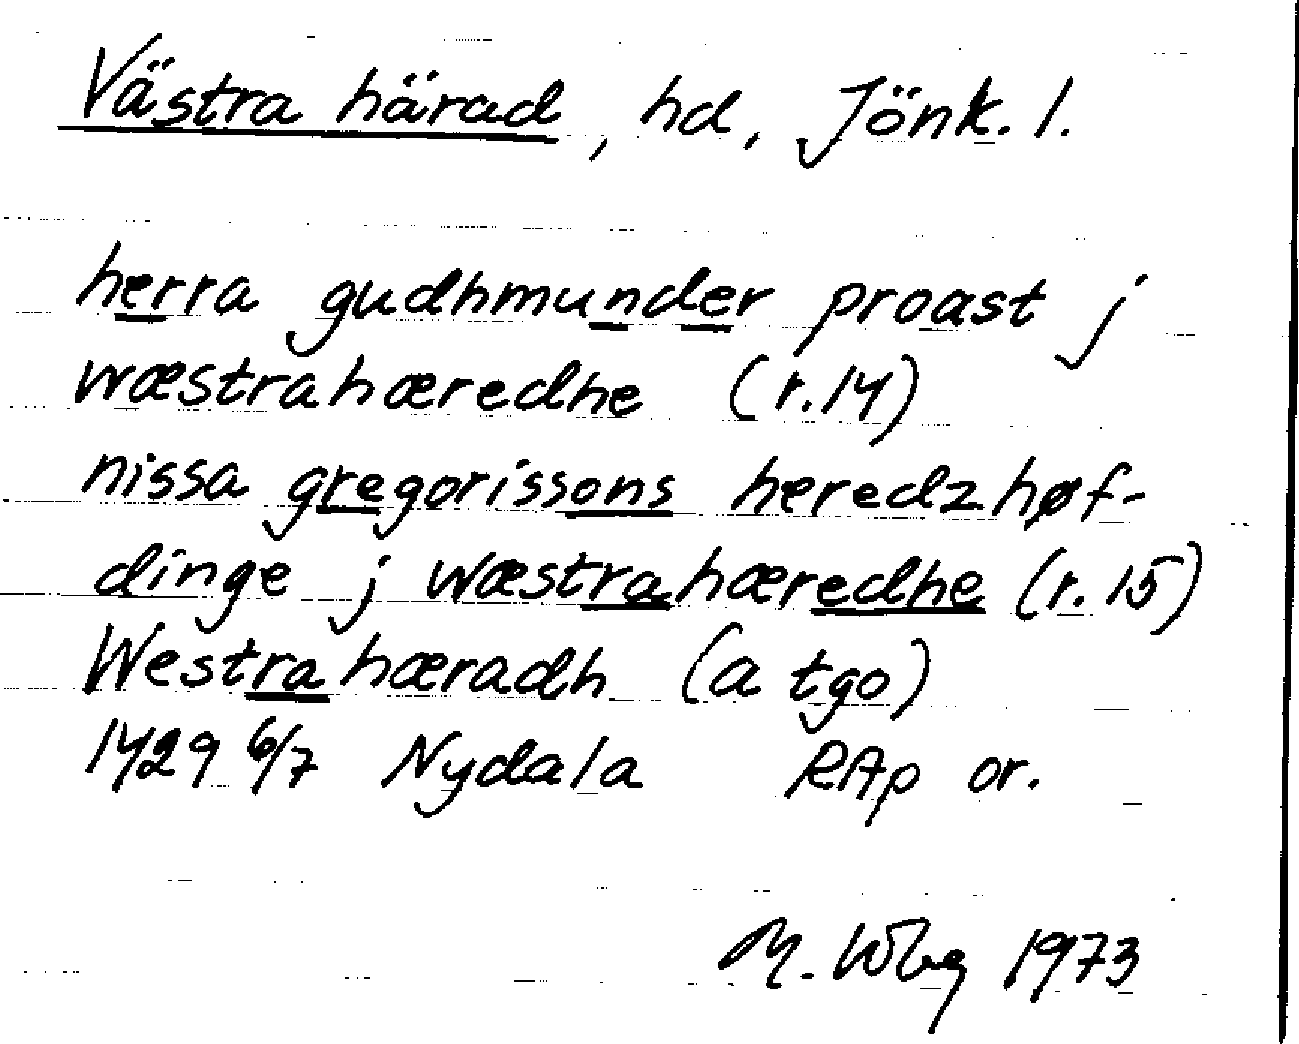 Västra härad, hd, Jönk. l.
herra gudhmunder proast j
wæstrahæredhe (r.14)
nissa gregorissons heredzhøf-
dinge j wæstrahæredhe (r.15)
Westra hæradh (a tgo)
1429 6/7 Nydala RAp or.
M. Wbg 1973